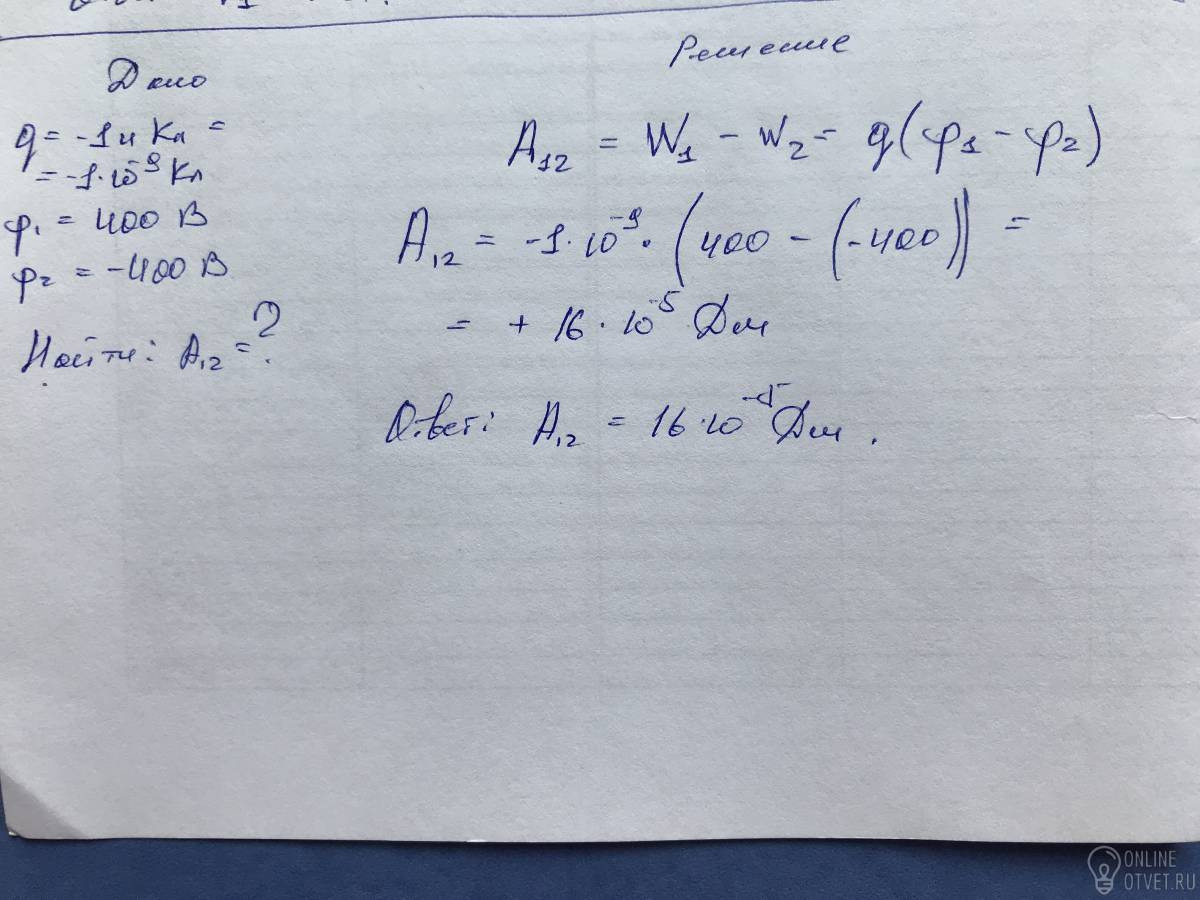 Решение
Дано
q = -1 н Кл =
= -1·10⁻⁹ Кл
φ₁ = 400 В
φ₂ = -400 В
Найти: A₁₂ = ?
A₁₂ = W₁ - W₂ = q(φ₁ - φ₂)
A₁₂ = -1·10⁻⁹·(400 - (-400)) =
= + 16·10⁻⁵ Дж
Ответ: A₁₂ = 16·10⁻⁵ Дж.
ONLINE
OTVET.RU